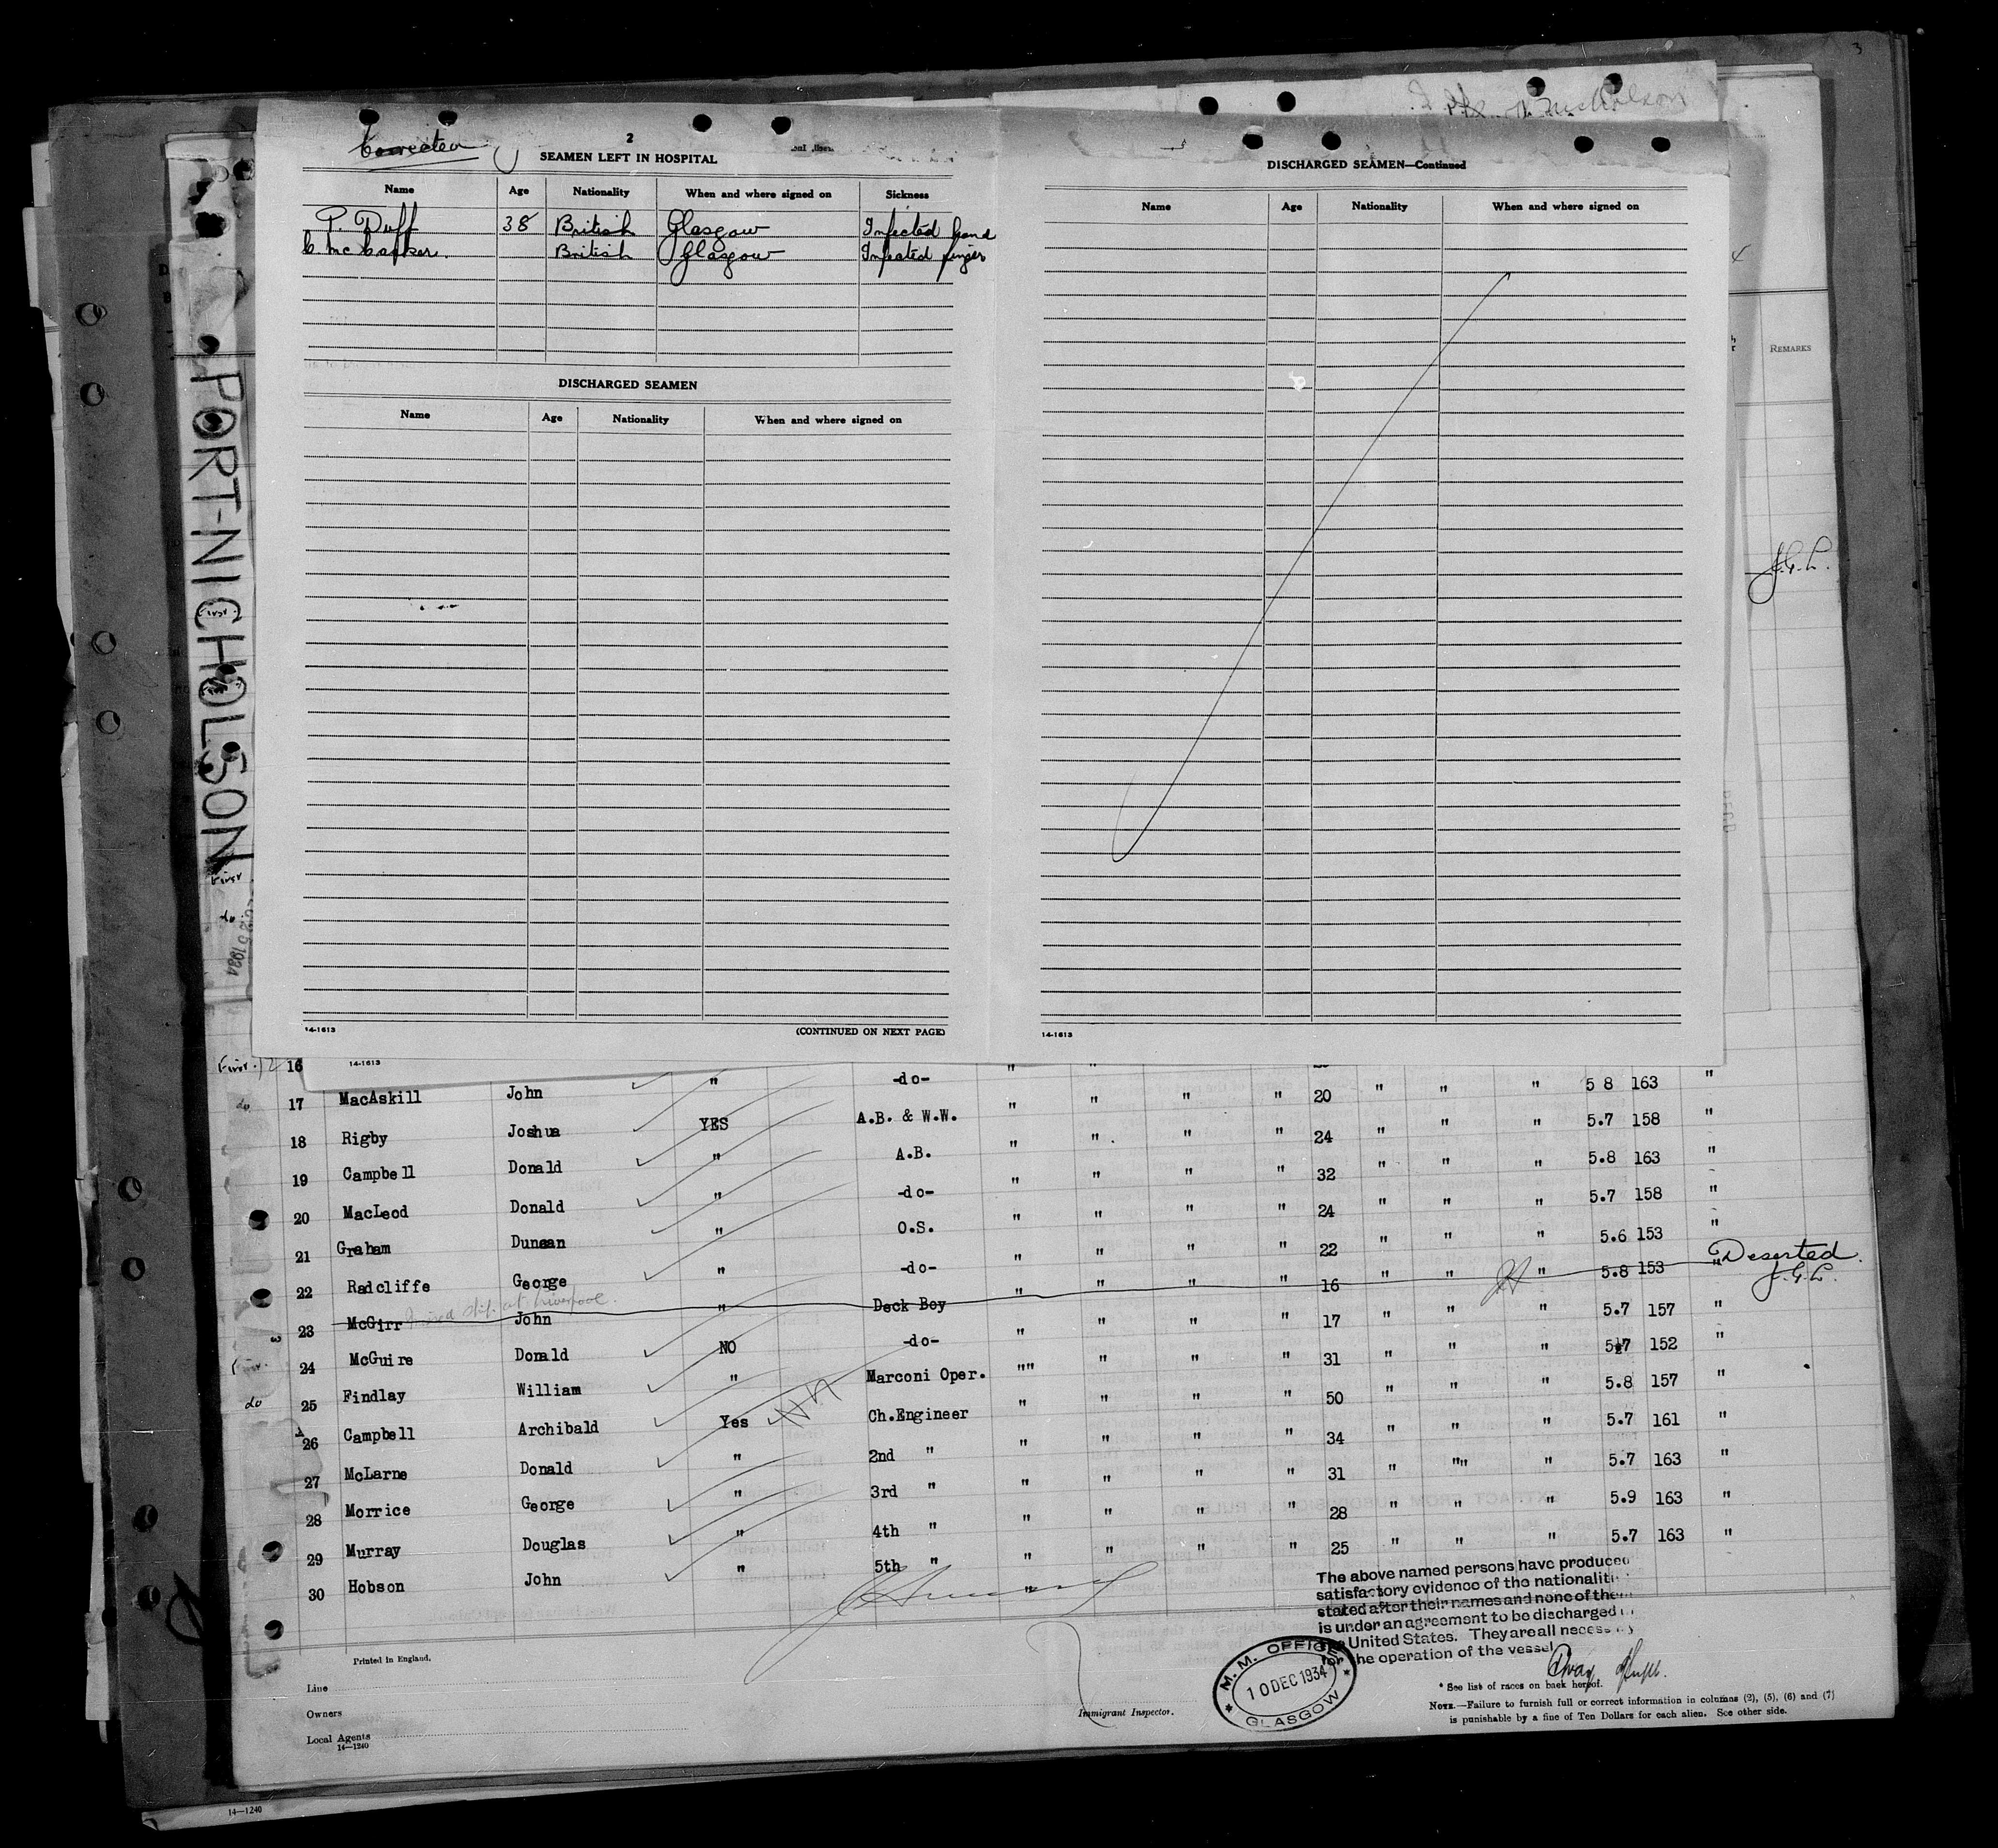 3
Corrected
2
SEAMEN LEFT IN HOSPITAL
Name Age Nationality When and where signed on Sickness
P. Duff 38 British Glasgow Infected hand
British Glasgow Infected finger
DISCHARGED SEAMEN
Name Age Nationality When and where signed on
14-1613 (CONTINUED ON NEXT PAGE)
DISCHARGED SEAMEN—Continued
Name Age Nationality When and where signed on
14-1613
REMARKS
J.G.L.
PORT-NICHOLSON
First
do.
First. 16 14-1613 " -do- " "
do 17 MacAskill John YES A.B. & W.W. " " " " 20 " " " 5 8 163 "
18 Rigby Joshua " A.B. " " " " 24 " " " 5.7 158 "
19 Campbell Donald " -do- " " " " 32 " " " 5.8 163 "
20 MacLeod Donald " O.S. " " " " 24 " " " 5.7 158 "
21 Graham Duncan " -do- " " " " 22 " " " 5.6 153 "
22 Radcliffe George " Deck Boy " " " " 16 " " " 5.8 153 " Deserted.
J.G.L.
23 McGirr Missed ship at Liverpool. John NO -do- " " " " 17 " " " 5.7 157 "
24 McGuire Donald " Marconi Oper. "" " " " 31 " " " 5.7 152 "
do 25 Findlay William Yes Ch.Engineer " " " " 50 " " " 5.8 157 "
26 Campbell Archibald " 2nd " " " " " 34 " " " 5.7 161 "
27 McLarne Donald " 3rd " " " " " 31 " "" " 5.7 163 "
28 Morrice George " 4th " " " " " 28 " " " 5.9 163 "
29 Murray Douglas " 5th " " " " " 25 " " " 5.7 163 "
30 Hobson John "
The above named persons have produced
satisfactory evidence of the nationaliti
stated after their names and none of them
is under an agreement to be discharged in
United States. They are all necess y
for the operation of the vessel
Printed in England.
Line
Owners
Local Agents
14—1240
Immigrant Inspector.
M. M. OFFICE
10 DEC 1934
GLASGOW
* See list of races on back hereof.
NOTE.—Failure to furnish full or correct information in columns (2), (5), (6) and (7)
is punishable by a fine of Ten Dollars for each alien. See other side.
14—1240